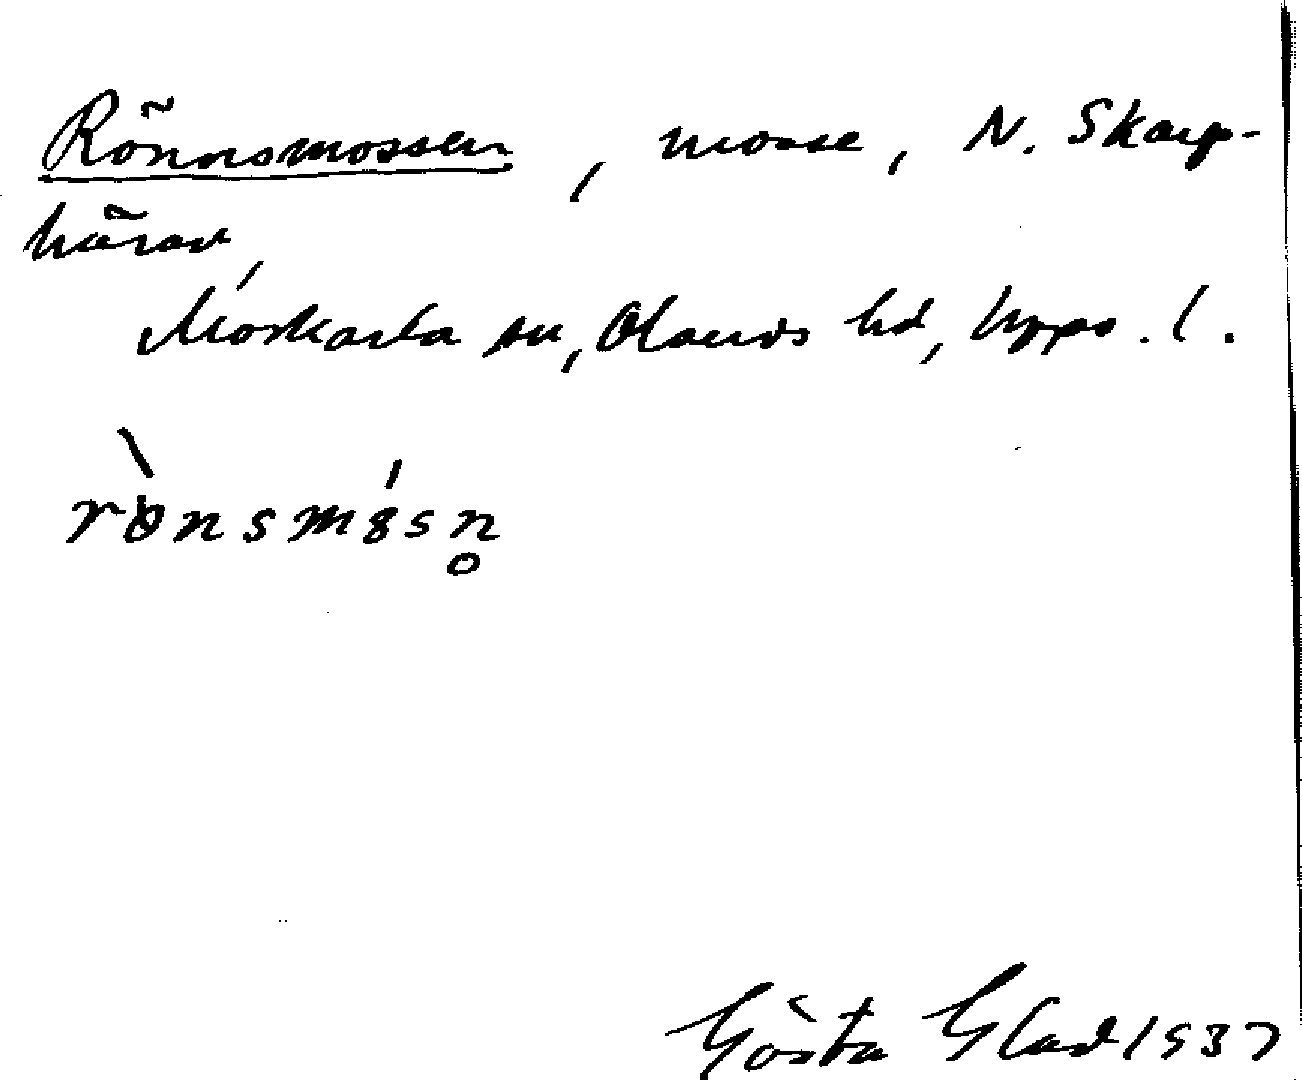 Rönnsmossen, mosse, N. Skarp-
härad,
Morkarla sn, Olands hd, Upps. l.
rönsmosn̥
Gösta Glad 1937